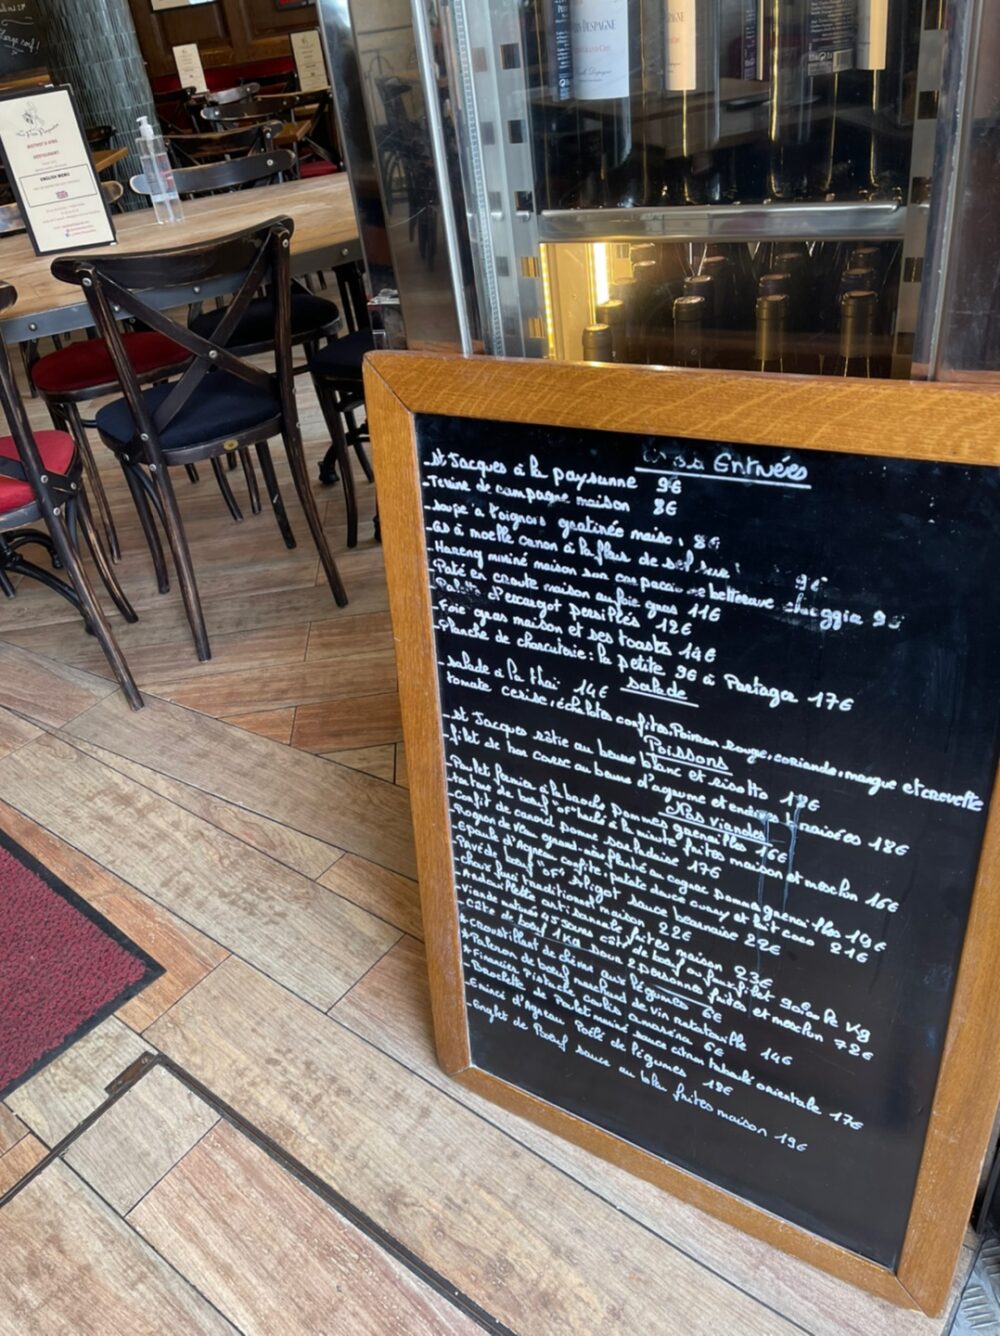 BISTROT À VINS
RESTAURANT
ENGLISH MENU
DESPAGNE
Entrées
-St Jacques à la paysanne 9€
-Terrine de campagne maison 8€
-soupe à l'oignons gratinée maison 8€
-Os à moelle canon à la fleur de sel 9€
-Hareng mariné maison sur carpaccio de betterave chioggia 9€
-Paté en croute maison au foie gras 11€
d'escargot persillés 12€
-Foie gras maison et ses toasts 14€
-Planche de charcuterie: la petite 9€ à Partager 17€
Salade
-salade à la thaï 14€
tomate cerise, échalotes confites, Poivron rouge, coriande, mangue et crevette
Poissons
-St Jacques rôtie au beurre blanc et risotto 18€
-filet de bar corse au beurre d'agrume et endives braisées 18€
Nos viandes
-Poulet fermier à la broche Pommes grenailles 16€
-tartare de bœuf "of" haché à la minute frites maison et mesclun 16€
-Confit de canard pomme sarladaise 17€
-Rognon de veau grand-mère flambé au cognac Pomme grenailles 19€
-Epaule d'Agneau confite: patate douce curry et lait coco 21€
-Pavé de bœuf "of" Aligot sauce bearnaise 22€
-choux farci traditionnel maison 22€
-Andouillette artisanale frites maison 23€
-Viande maturé 45 jours côte de bœuf ou faux filet le Kg
-Côte de bœuf 1Kg pour 2 personnes frites et mesclun 72€
*Croustillant de chèvre aux légumes 6€
*Paleron de bœuf marchand de vin ratatouille 14€
*Financier Pistache coulis amaréna 6€
-Brochette de Poulet mariné sauce citron taboulé orientale 17€
-Emincé d'Agneau Poêlé de légumes 18€
-Onglet de Bœuf sauce au bleu frites maison 19€